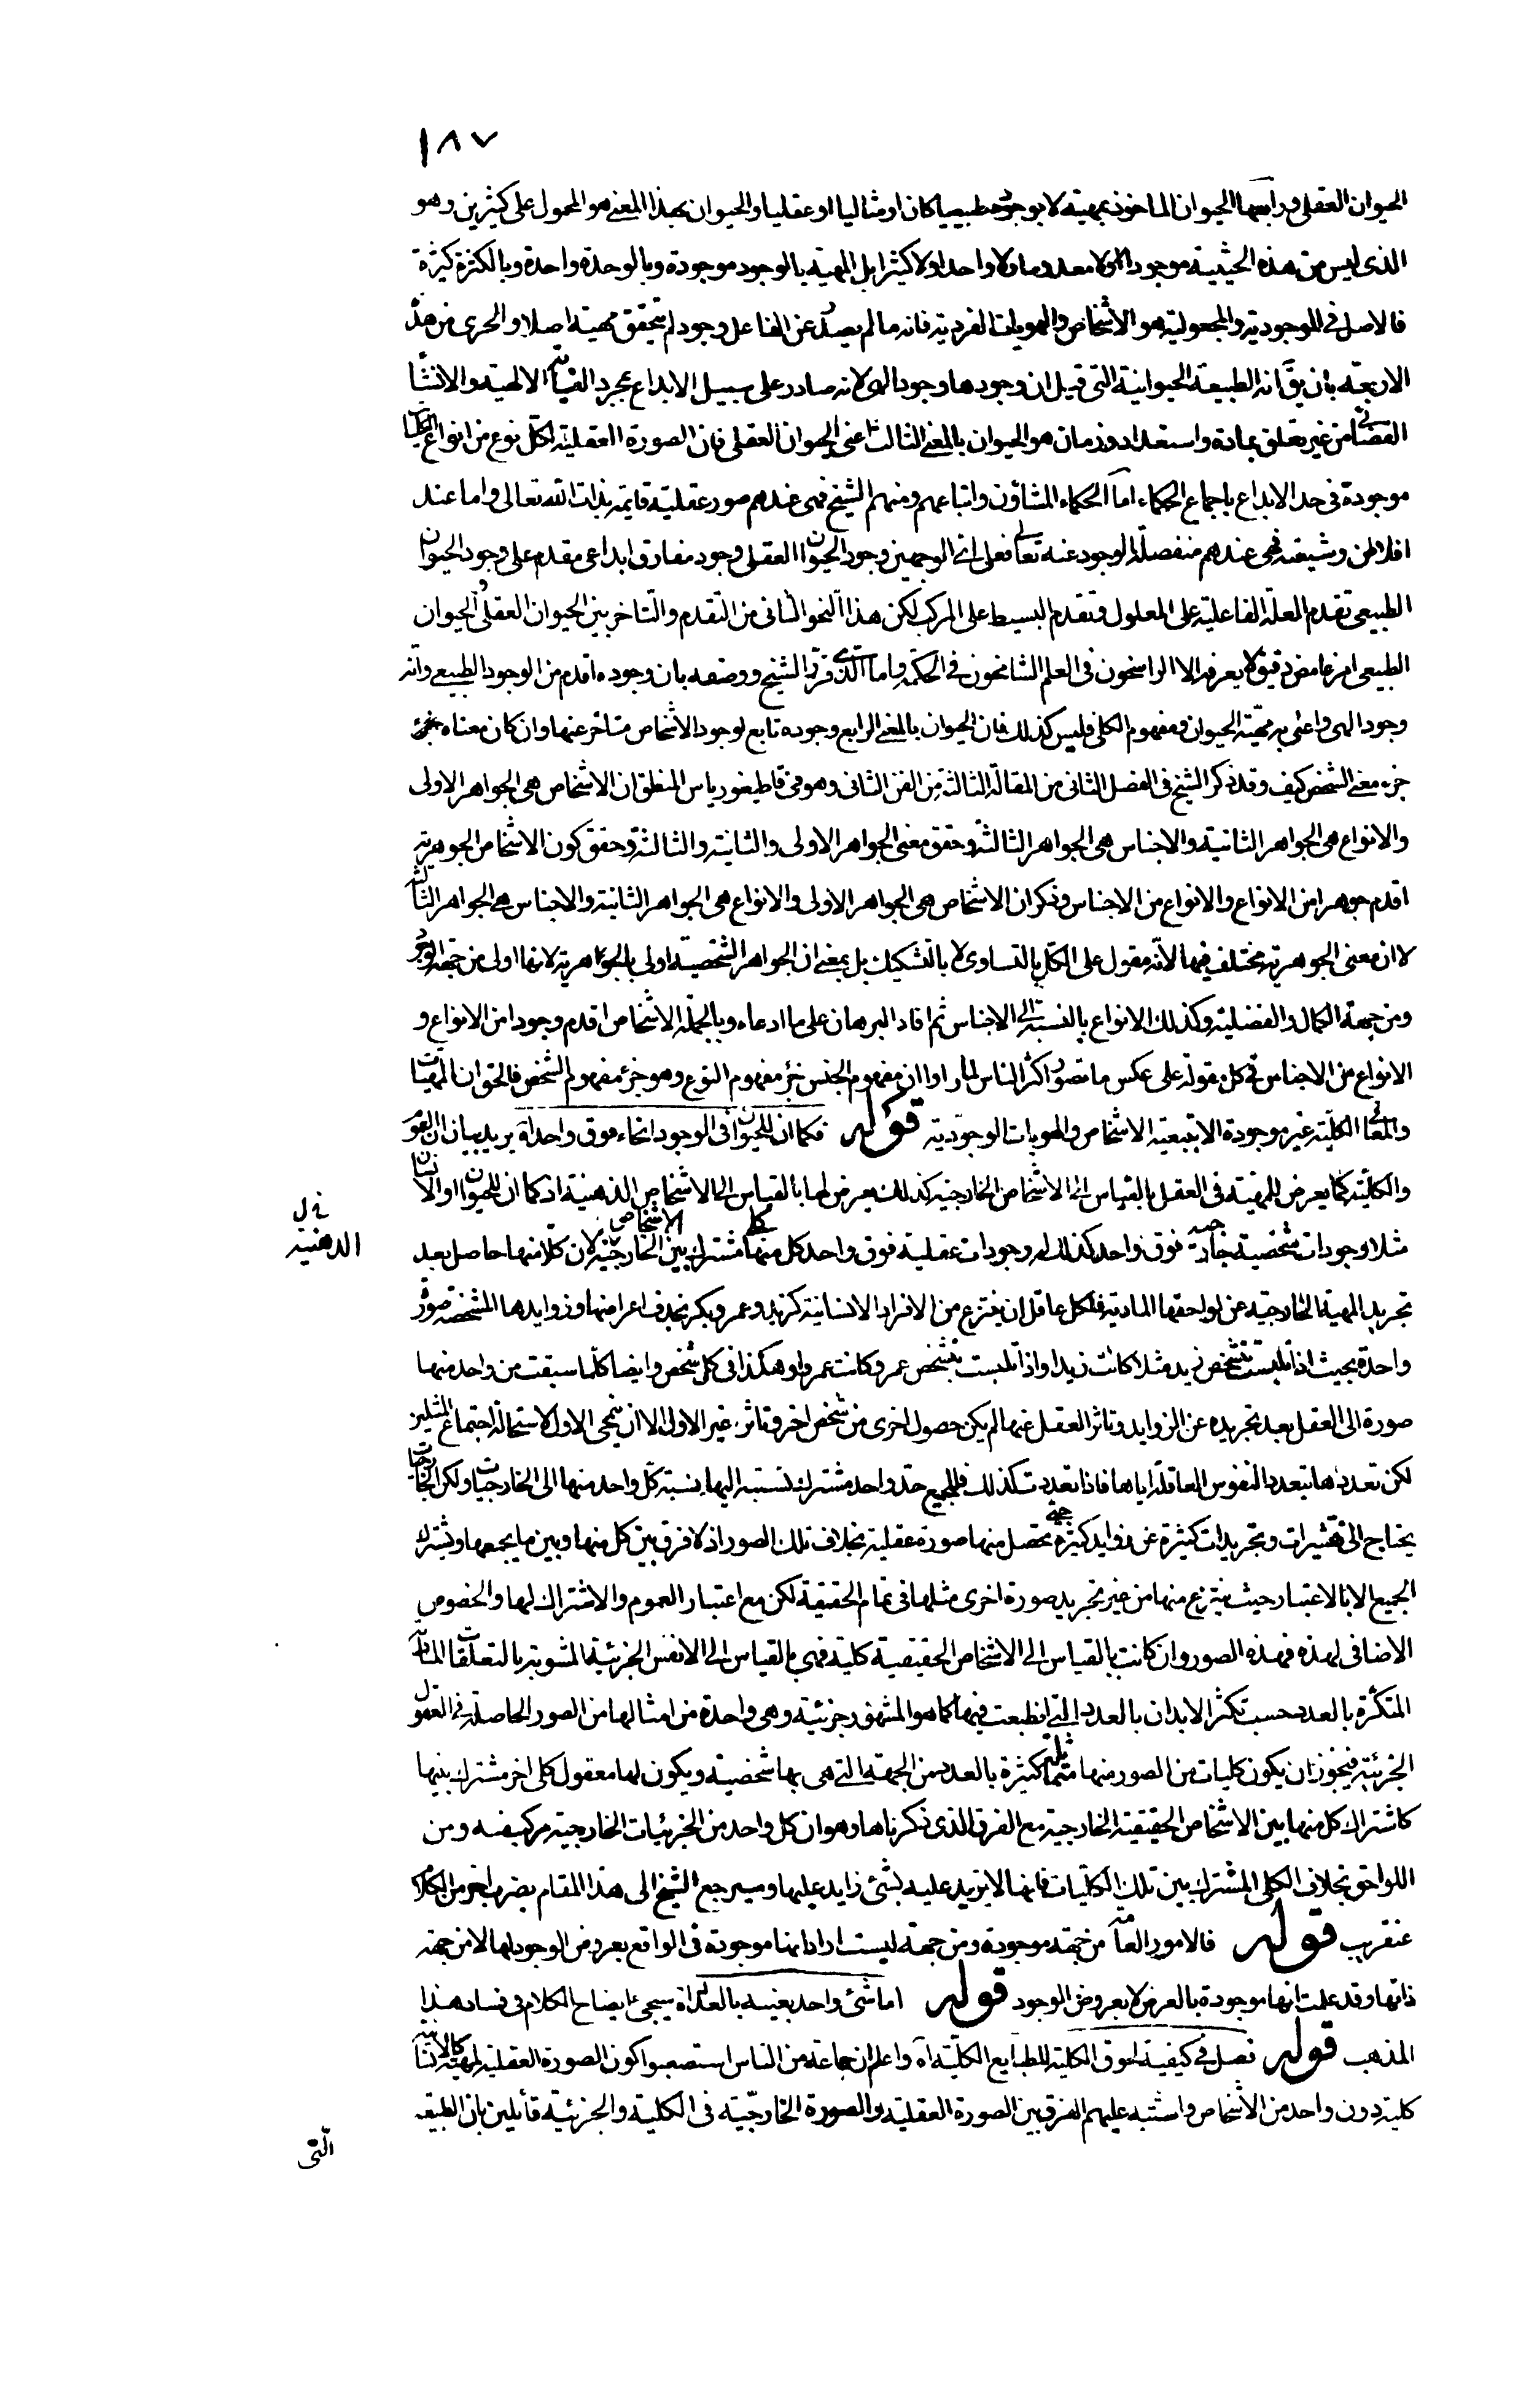 ١٨٧
الحيوان العقلى ورابعها الحيوان الماخوذ بمهيته لا بوجوده طبيعيا كان او مثاليا او عقليا والحيوان بهذا المعنى هو المحمول على كثيرين وهو
الذى ليس من هذه الحيثية موجودا ولا معدوما ولا واحدا ولا كثيرا بل المهية بالوجود موجودة وبالوحدة واحدة وبالكثرة كثيرة
فالاصل فى الموجودية والمجعولية هو الاشخاص والهويات الفردية فانه ما لم يصدر عن الفاعل وجود لم يتحقق مهية اصلا والحرى من هذه
الاربعة بان يقّ انه الطبيعة الحيوانية التى قيل ان وجودها وجود الهى لانه صادر على سبيل الابداع بمجرد العناية الالهية والانشا
القضائى من غير تعلق بمادة واستعداد وزمان هو الحيوان بالمعنى الثالث اعنى الحيوان العقلى فان الصورة العقلية لكل نوع من انواع
موجودة فى حد الابداع باجماع الحكماء اما الحكماء المشاؤن واتباعهم ومنهم الشيخ فهى عندهم صور عقلية قايمة بذات الله تعالى واما عند
افلاطن وشيعته فهى عندهم منفصلة الوجود عنه تعالى فعلى اى الوجهين وجود الحيوان العقلى وجود مفارق ابداعى مقدم على وجود الحيوان
الطبيعى تقدم العلة الفاعلية على المعلول وتقدم البسيط على المركب لكن هذا النحو الثانى من التقدم والتاخر بين الحيوان العقلى والحيوان
الطبيعى امر غامض دقيق لا يعرفه الا الراسخون فى العلم الشامخون فى الحكمة واما الذى قرره الشيخ ووصفه بان وجوده اقدم من الوجود الطبيعى وانه
وجود الهى واعنى به مهية الحيوان ومفهومه الكلى فليس كذلك فان الحيوان بالمعنى الرابع وجوده تابع لوجود الاشخاص متاخر عنها وان كان معناه
جزء معنى الشخص كيف وقد ذكر الشيخ فى الفصل الثانى من المقالة الثالثة من الفن الثانى وهو فى قاطيغورياس المنطق ان الاشخاص هى الجواهر الاولى
والانواع هى الجواهر الثانية والاجناس هى الجواهر الثالثة وحقق معنى الجواهر الاولى والثانية والثالثة وحقق كون الاشخاص الجوهرية
اقدم جوهرا من الانواع والانواع من الاجناس وذكر ان الاشخاص هى الجواهر الاولى والانواع هى الجواهر الثانية والاجناس هى الجواهر الثالثة
لا ان معنى الجوهرية مختلف فيها لانه مقول على الكل بالتساوى لا بالتشكيك بل بمعنى ان الجواهر الشخصية اولى بالجوهرية لانها اولى من جهة الوجود
ومن جهة الكمال والفضلية وكذلك الانواع بالنسبة الى الاجناس ثم افاد البرهان على ما ادعاه وبالجملة الاشخاص اقدم وجودا من الانواع و
الانواع من الاجناس فى كل مقولة على عكس ما تصور اكثر الناس لما راوا ان مفهوم الجنس جزء مفهوم النوع وهو جزء مفهوم الشخص فالحق ان المهيات
والمعانى الكلية غير موجودة الا بتبعية الاشخاص والهويات الوجودية قوله فكما ان للحيوان فى الوجود انحاء فوق واحد اه يريد بيان ان العموم
والكلية كما يعرض للمهية فى العقل بالقياس الى الاشخاص الخارجية كذلك يعرض لها بالقياس الى الاشخاص الذهنية اذ كما ان للحيوان او الانسان
مثلا وجودات شخصية خارجية فوق واحد كذلك له وجودات عقلية فوق واحد كل منها كلى مشترك بين الاشخاص الخارجية لان كلا منها حاصل بعد
فى ل
الذهنيه
تجريد المهية الخارجية عن لواحقها المادية فلكل عاقل ان ينتزع من الافراد الانسانية كزيد وعمرو وبكر بحذف اعراضها وزوايدها المشخصة صورة
واحدة بحيث اذا تلبست بتشخص زيد مثلا كانت زيدا واذا تلبست بتشخص عمرو كانت عمروا وهكذا فى كل شخص وايضا كلما سبقت من واحد منها
صورة الى العقل بعد تجريده عن الزوايد وتاثر العقل عنها لم يكن حصول اخرى من شخص اخر وتاثر غير الاولى الا ان ينمحى الاول لاستحالة اجتماع المثلين
لكن تعددها بتعدد النفوس العاقلة اياها فاذا تعددت كذلك فللجميع حد واحد مشترك نسبته اليها بنسبة كل واحد منها الى الخارجيات ولكن الخارجيات
يحتاج الى تقشيرات وتجريدات كثيرة عن زوايد كثيرة حتى يحصل منها صورة عقلية بخلاف تلك الصور اذ لا فرق بين كل منها وبين ما يجمعها ويشترك
الجميع الا بالاعتبار حيث ينتزع منها من غير تجريد صورة اخرى مثلها فى تمام الحقيقة لكن مع اعتبار العموم والاشتراك لها والخصوص
الاضافى لهذه فهذه الصور وان كانت بالقياس الى الاشخاص الحقيقية كلية فهى بالقياس الى الانفس الجزئية المشوبة بالتعلقات المادية
المتكثرة بالعدد حسب تكثر الابدان بالعدد التى انطبعت فيها كما هو المشهور جزئية وهى واحدة من امثالها من الصور الحاصلة فى العقول
الجزئية فيجوز ان يكون كليات من الصور منها متماثلة كثيرة بالعدد من الجهة التى هى بها شخصية ويكون لها معقول كلى اخر مشترك بينها
كاشتراك كل منها بين الاشخاص الحقيقية الخارجية مع الفرق الذى ذكرناها وهو ان كل واحد من الجزئيات الخارجية مركب منه ومن
اللواحق بخلاف الكلى المشترك بين تلك الكليات فانها لا يزيد عليه بشئ زايد عليها وسيرجع الشيخ الى هذا المقام بضرب اخر من الكلام
عنقريب قوله فالامور العامة من جهة موجودة ومن جهة ليست اراد انها موجودة فى الواقع بعروض الوجود لها لا من جهة
ذاتها وقد علمت انها موجودة بالعرض لا بعروض الوجود قوله اما شئ واحد بعينه بالعدد اه سيجئ ايضاح الكلام فى فساد هذا
المذهب قوله فصل فى كيفية لحوق الكلية للطبايع الكلية اه واعلم ان جماعة من الناس استصعبوا كون الصورة العقلية لمهية كالانسانية
كلية دون واحد من الاشخاص واشتبه عليهم الفرق بين الصورة العقلية والصورة الخارجية فى الكلية والجزئية قائلين بان الطبيعة
التى